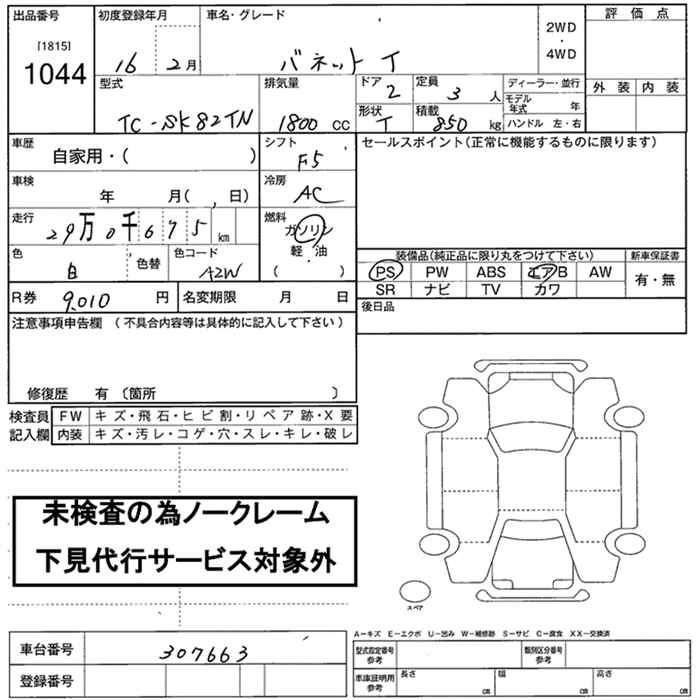 出品番号 初度登録年月 車名・グレード 評価点
[1815]
1044
16 2月 バネット T
2WD
・
4WD
外装 内装
型式 排気量 ドア 定員 ディーラー・並行
TC-SK82TN 1800 CC 2 3 人 モデル年式 年
形状 積載 ハンドル 左・右
T 850 kg
車歴 シフト セールスポイント(正常に機能するものに限ります)
自家用・( ) F5
車検 冷房
年 月( , 日) AC
走行 燃料
29万0千675 km ガソリン
軽・油
( ・ )
色 色替 色コード
白 A2W
装備品(純正品に限り丸をつけて下さい) 新車保証書
PS PW ABS エアB AW 有・無
SR ナビ TV カワ
R券 9,010 円 名変期限 月 日
後日品
注意事項申告欄 (不具合内容等は具体的に記入して下さい)
修復歴 有 〔箇所 〕
検査員記入欄 FW キズ・飛石・ヒビ割・リペア跡・X要
内装 キズ・汚レ・コゲ・穴・スレ・キレ・破レ
未検査の為ノークレーム
下見代行サービス対象外
スペア
A-キズ E-エクボ U-凹み W-補修跡 S-サビ C-腐食 XX-交換済
車台番号 307663
登録番号
型式指定番号参考 類別区分番号参考
車庫証明用参考 長さ cm 幅 cm 高さ cm